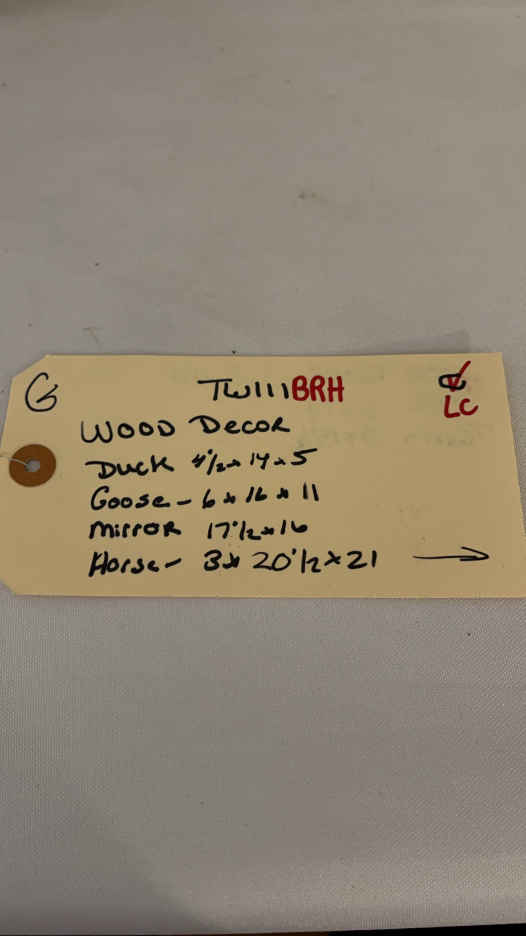 G TW111BRH
LC
WOOD DECOR
Duck 4 1/2 x 14 x 5
Goose - 6 x 16 x 11
Mirror 17 1/2 x 16
Horse - 3 x 20 1/2 x 21 →